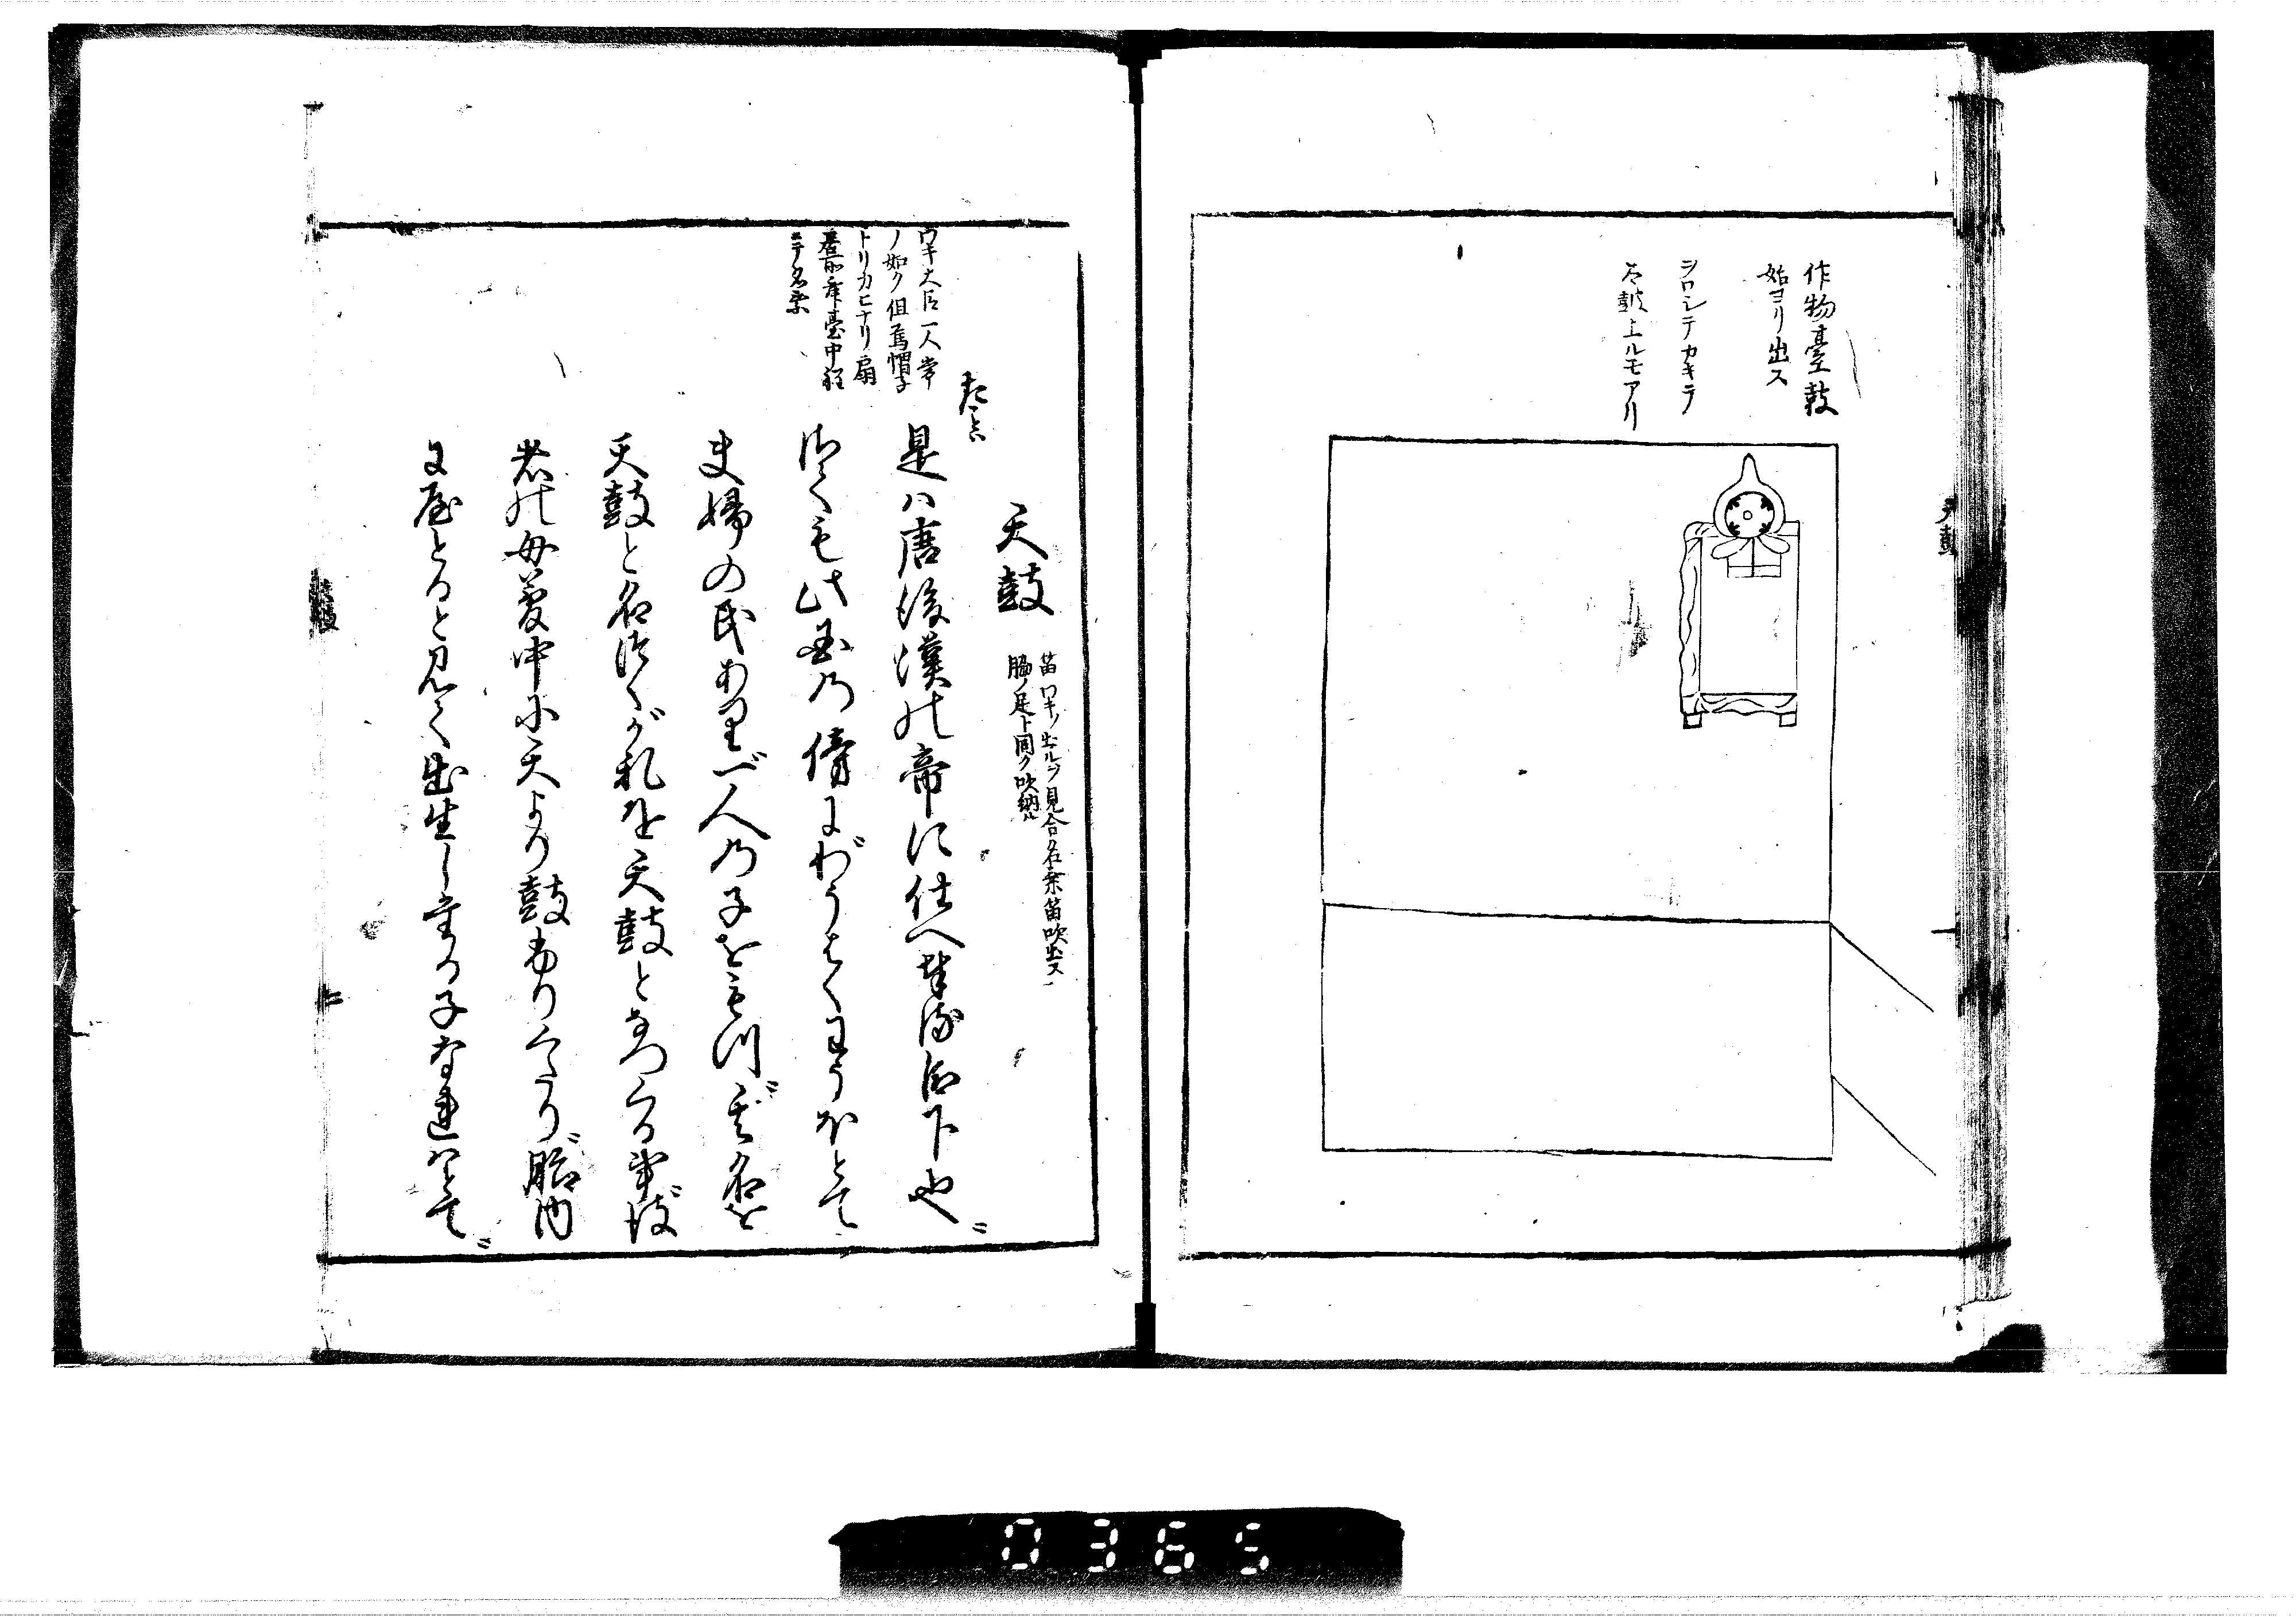 作物臺ニ鼓
始ヨリ出ス
ヲロシテカキテ
右鼓上ルモアリ
天鼓
笛ワキノ出ルヲ見合名乗笛吹出ス
脇ノ足ト同ク吹納ル
ワキ大臣一人常
ノ如ク但烏帽子
トリカヒナリ扇
舞臺中程
ニテ名乗
是ハ唐後漢の帝に仕へ奉る臣下也
偖も此国乃傍にわうはくわうほとて
夫婦の民あり一人乃子をもつ其名を
天鼓と名付く彼を天鼓となつくる事は
彼の母夢中に天より鼓ふりくたり胎内
に屋とると見て出生したる子なればとて
天鼓
0365